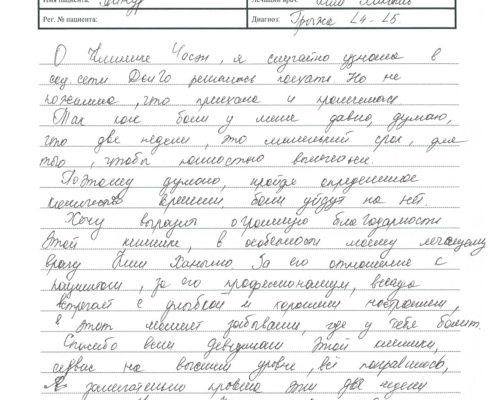 Имя пациента: Тимур Лечащий врач: Ким
Рег. № пациента: Диагноз: Грыжа L4 - L5
О Клинике Часэн, я случайно узнала в
соц. сети Долго решалась поехать. Но не
пожалела, что приехала и пролечилась
Так как боли у меня давно, думаю,
что две недели, это маленький срок, для
того, чтобы полностью вылечение.
Поэтому думаю, пройдя определенное
количество времени боли уйдут на нет.
Хочу выразить огромную благодарность
этой клинике, в особенности моему лечащему
врачу Ким За его отношение к
пациентам, за его профессионализм, всегда
встречает с улыбкой и хорошим настроением,
в этот момент забываешь, где у тебя болит.
Спасибо всем девушкам этой клиники,
сервис на высшем уровне, всё понравилось,
Я замечательно провела эти две недели